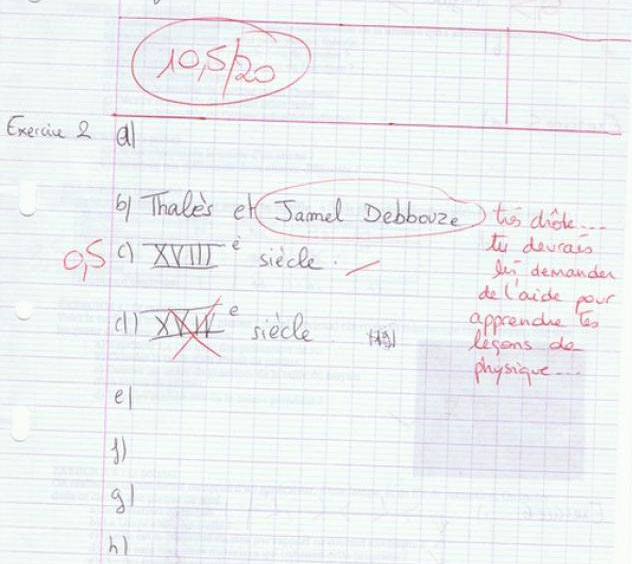 10,5/20
Exercice 2 a)
b) Thalès et Jamel Debbouze
très drôle...
tu devrais
lui demander
de l'aide pour
apprendre tes
leçons de
physique...
0,5 c) XVIII è siècle.
d) XVII e siècle
e)
f)
g)
h)